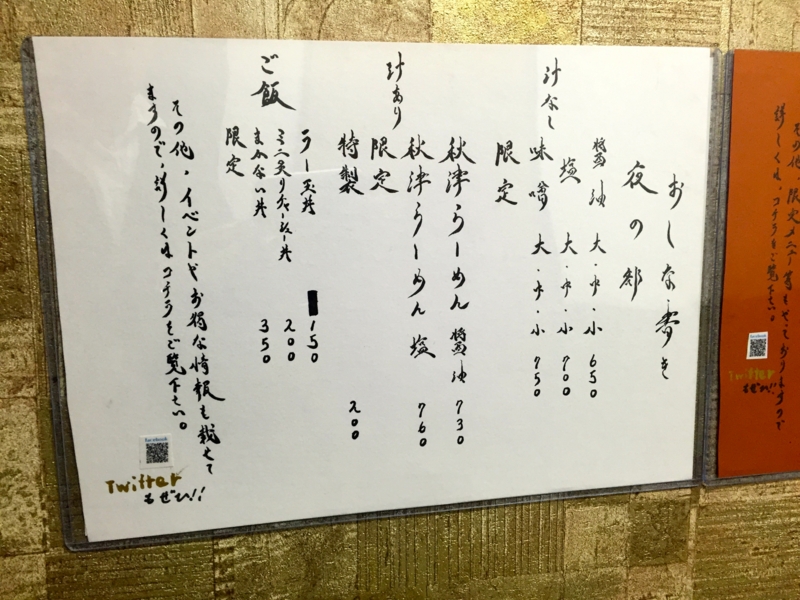 おしながき
夜の部
汁なし
醤油 大・中・小 650
塩 大・中・小 700
味噌 大・中・小 750
限定
汁あり
秋津らーめん 醤油 730
秋津らーめん 塩 760
限定
特製 200
ご飯
ラー玉丼 150
ミニ炙りチャーシュー丼 200
まかない丼 350
限定
その他、イベントやお得な情報も載せて
ますので、詳しくはコチラをご覧下さい。
facebook
Twitter
もぜひ!!
その他、限定メニュー等ものせておりますので
詳しくは、コチラをご覧下さい。
Twitter
もぜひ!!